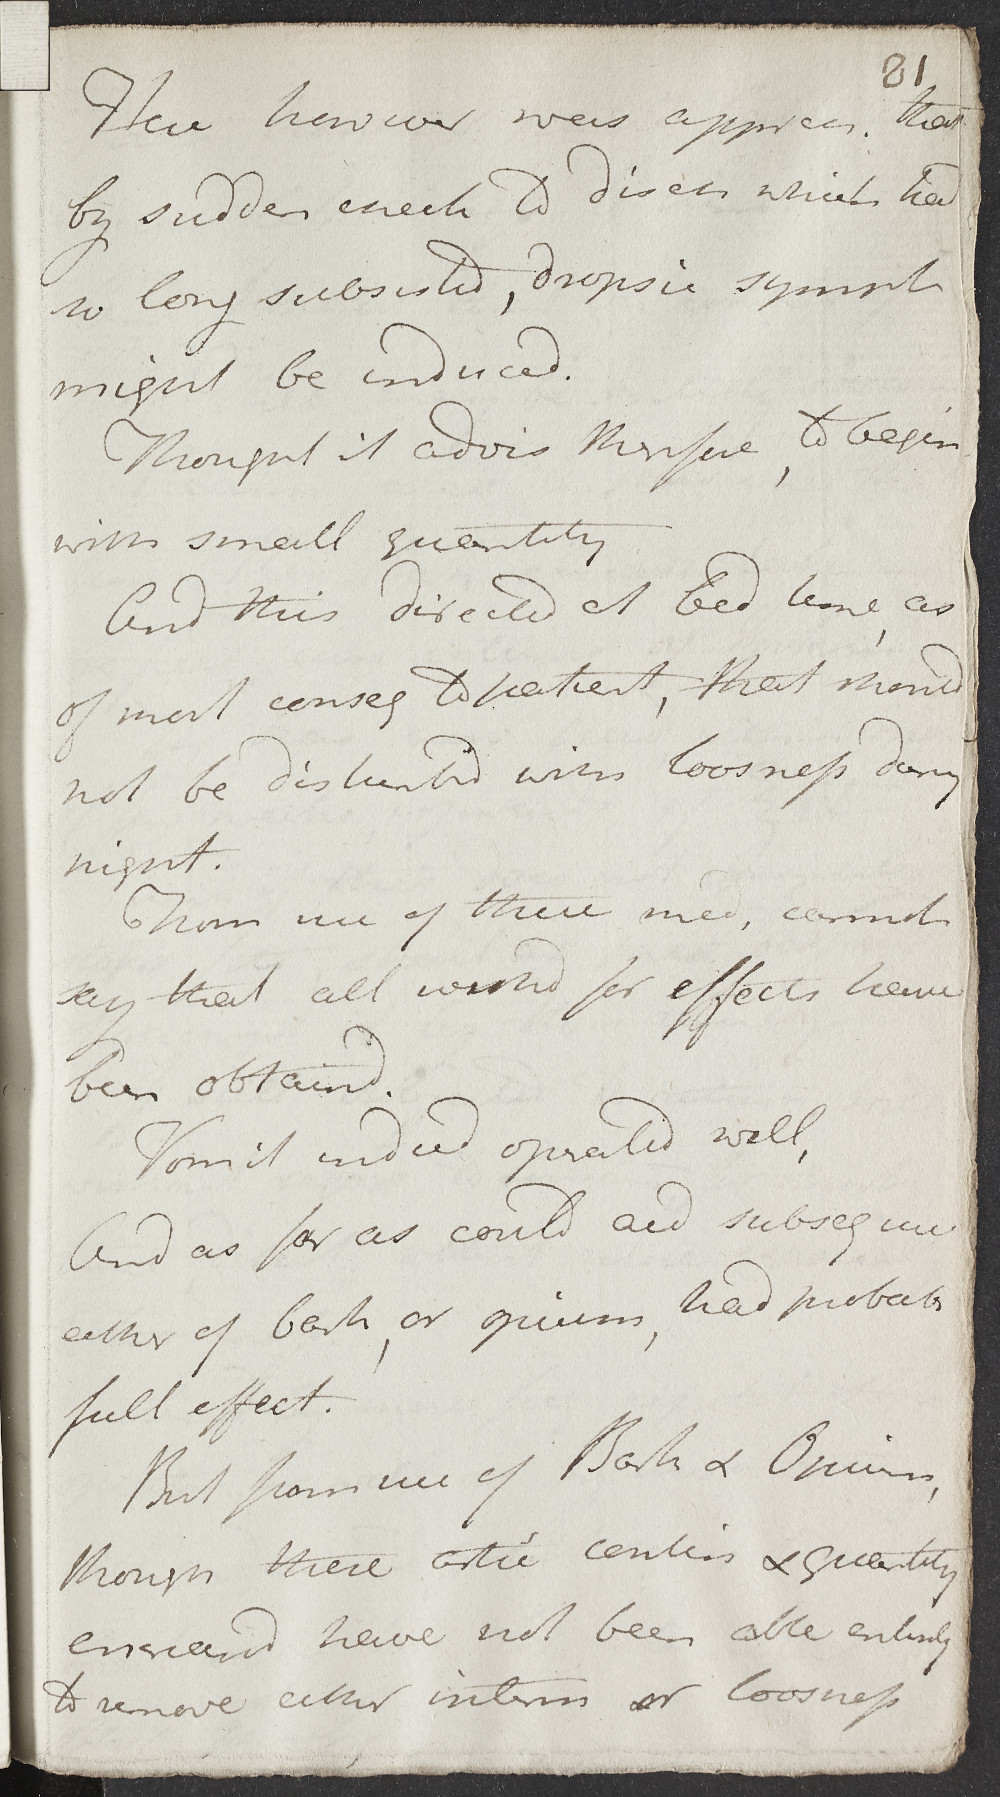 81
Here however was appreh. that
by sudden check to diseas which had
so long subsisted, dropsic sympt
might be induced.
Thought it advis therefore, to begin
with small quantity
And this directed at bed time, as
of most conseq to patient, that should
not be disturb'd with loosness durng
night.
From use of these med, cannot
say that all wishd for effects have
been obtaind.
Vomit indeed operated well,
And as far as could aid subsequ use
either of bark, or opium, had probab
full effect.
But from use of Bark & Opium,
though these artic contin & quantity
encreasd have not been able entirely
to remove either interm or loosness